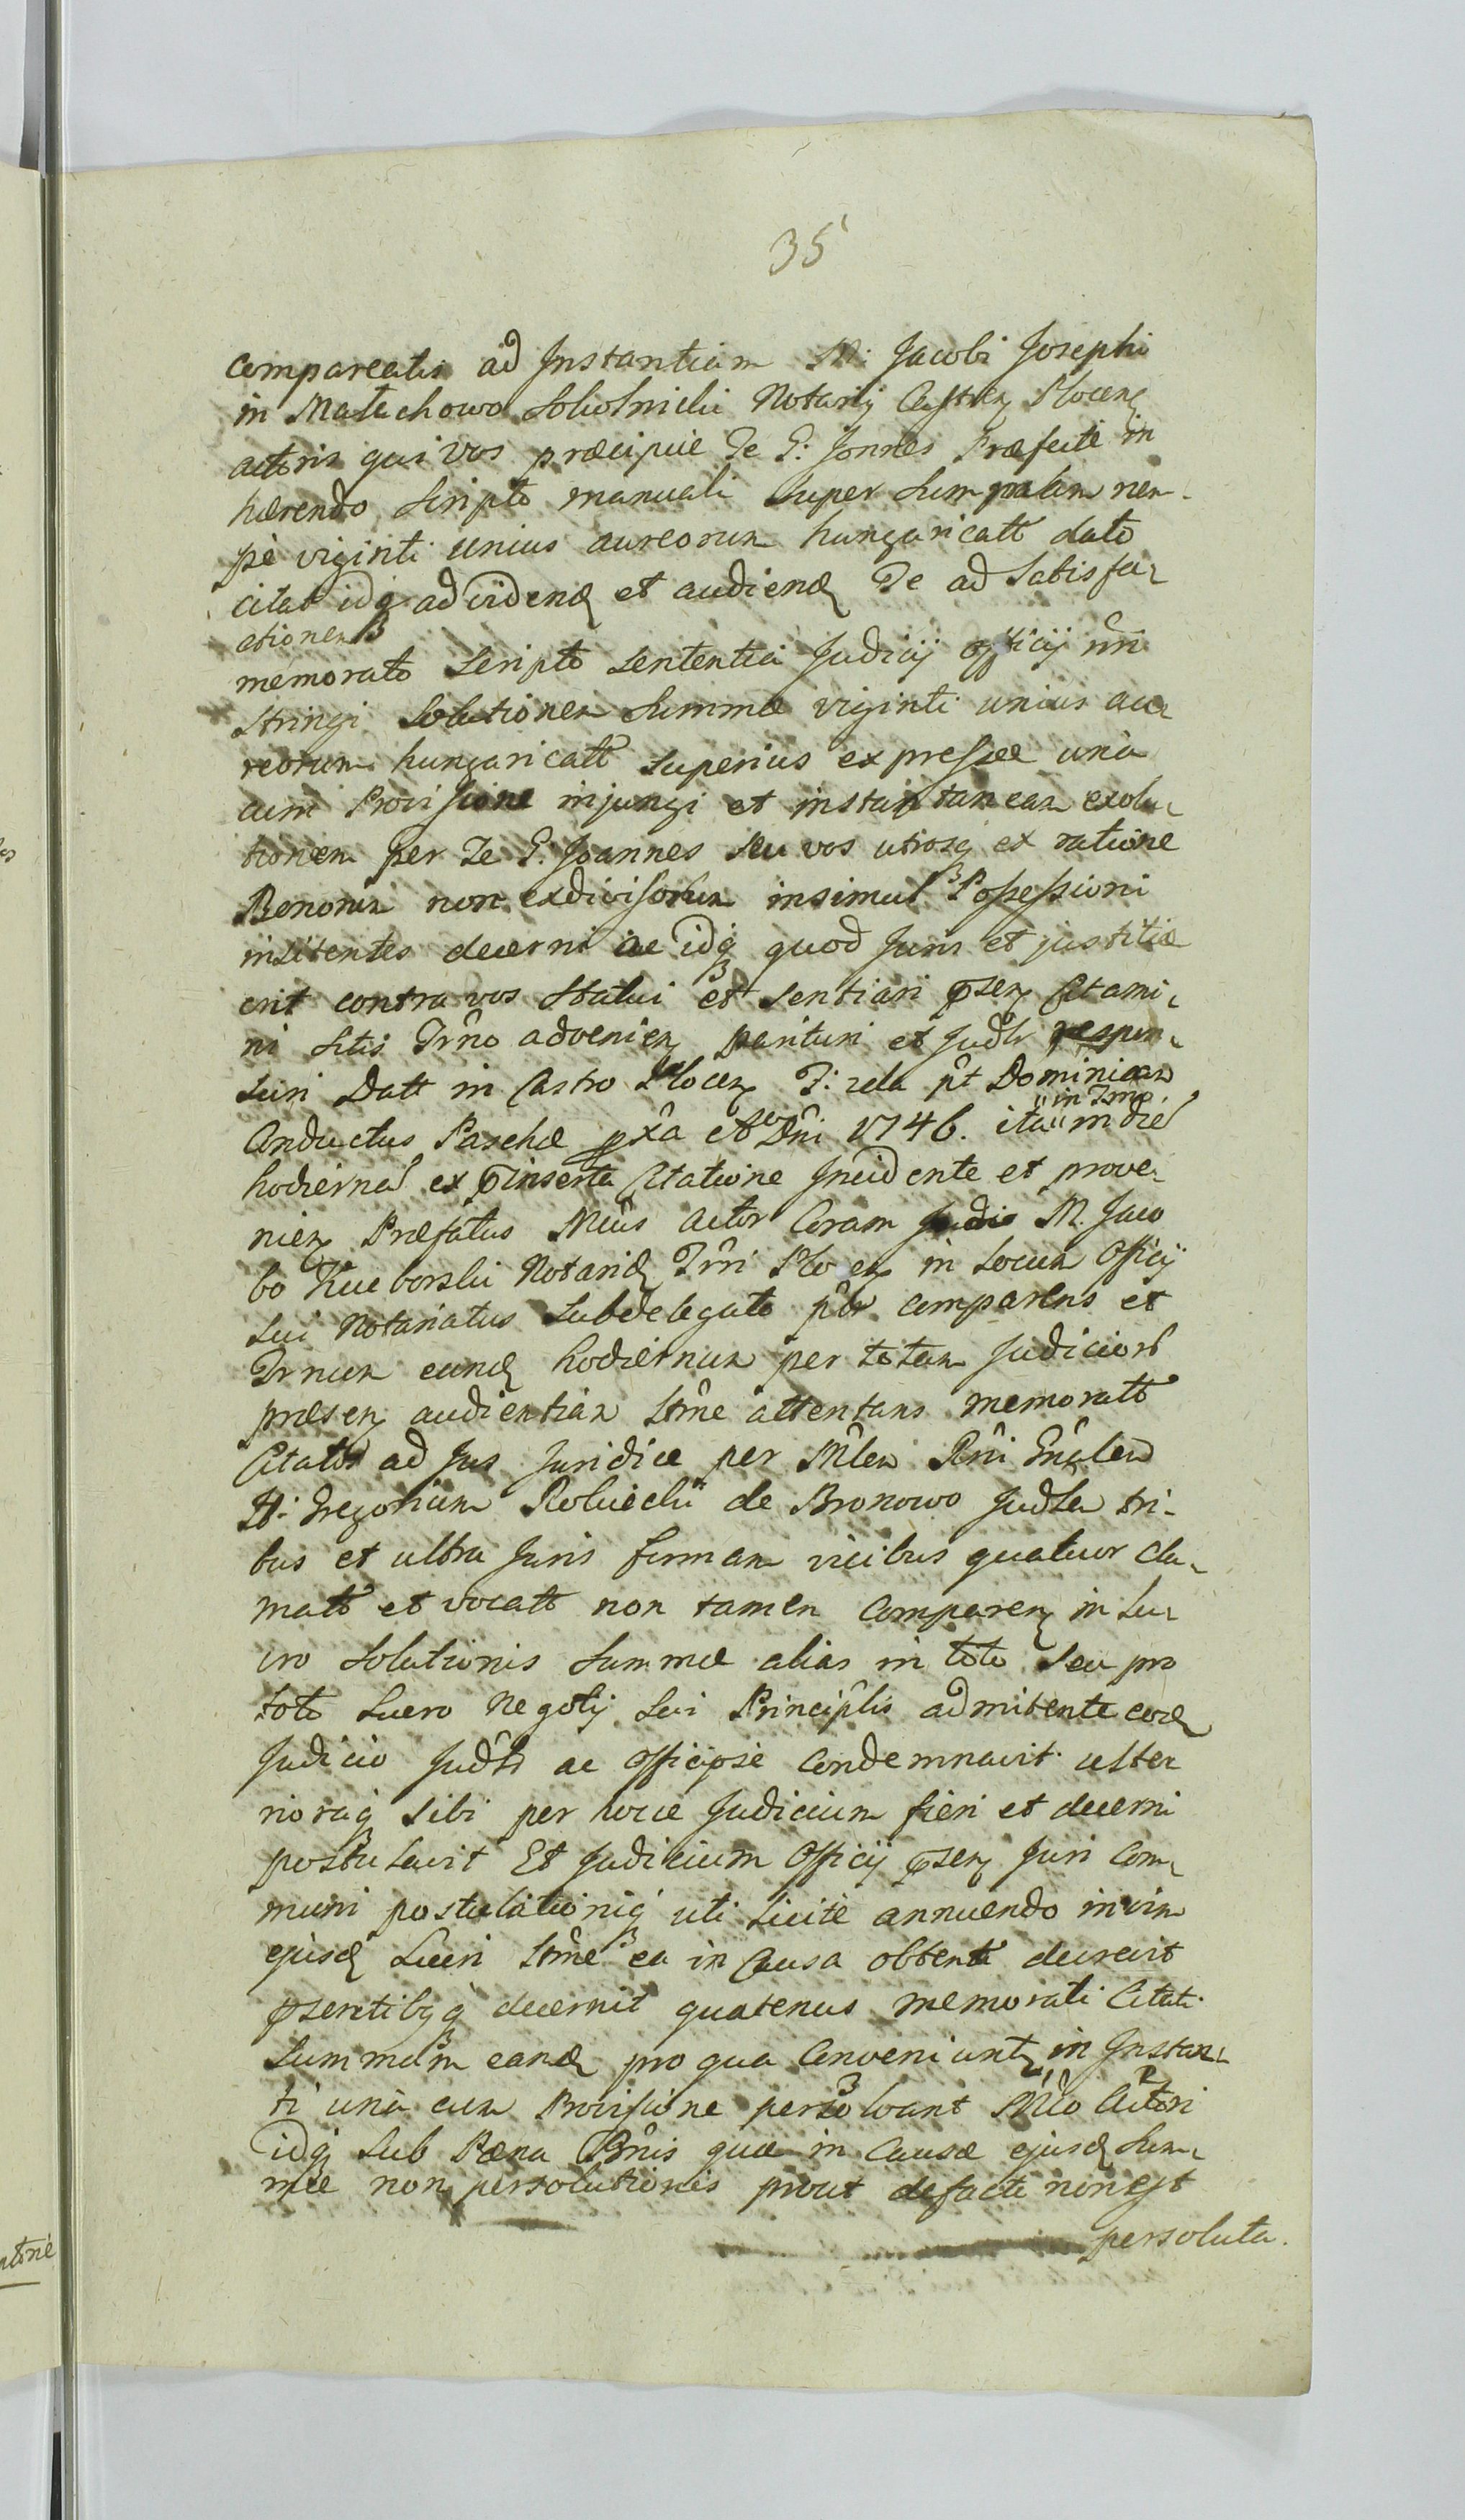 35
compareatis ad Instantiam M: Jacobi Josephi
in Małachowo Sokolnicki Notarij Castren Plocen
actoris qui vos præcipue Te G: Joannes Præfecte in
hærendo scripto manuali super summam nem-
pe viginti unius aureorum hungaricatt dato
citat idq ad videnđ et audienđ Te ad satisfa-
ctionem
memorato scripto sententia Judicij officij nri
stringi solutionem summæ viginti unius au-
reorum hungaricatt superius expressæ una
cum Provisione injungi et instantaneam exolu-
tionem per Te G: Joannes seu vos utrosq ex ratione
Bonorum non exdivisorum insimul Possessioni
insitentes decerni ac idq quod Juris et justitiæ
erit contra vos statui et sentiari psen Citami-
ni sitis Trno advenien parituri et Judlr respon-
suri Datt in Castro Plocen F: 2da pt Dominicam
Conductus Paschæ pxa Ao Dni 1746. ita in Trno in die
hodierna ex pinserta Citatione Incidente et prove-
nien Præfatus Mcus actor Coram Judio M. Jaco
bo Notario Trri Plocen in locum Officij
sui Notariatus subdelegato pltr comparens et
Trnum eunđ hodiernum per totam JudiciorB
præsen audientiam ltme attentans memoratt
Citatos ad Jus Juridice per Mlem Rni Gnalem
H: Gregorium de Bronowo Judlem tri-
bus et ultra Juris formam vicibus quatuor cla-
matt et vocatt non tamen Comparen in lu-
cro solutionis summæ alias in toto seu pro
toto lucro Negotij sui Principlis admitente eođ
Judicio Judlr ac Officiose Condemnavit ulter
rioraq sibi per hocce Judicium fieri et decerni
postulavit Et Judicium Officij psen Juri Com-
muni postulationiq uti licite annuendo in vim
ejusđ lucri ltme ea in Causa obtenti decrevit
psentibqq decernit quatenus memorati Citati
summam eanđ pro qua Conveniuntr in Instan-
ti una cum Provisione persolvant Mco Actori
idq sub Pæna Bnis quæ in Causa ejusđ sum-
mæ non persolutionis prout defacto non est
persoluta.